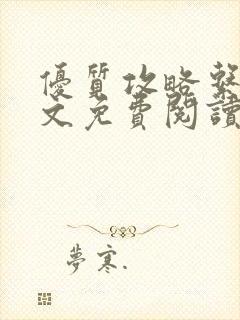 優質攻略繫
文免費閱讀
夢寒.